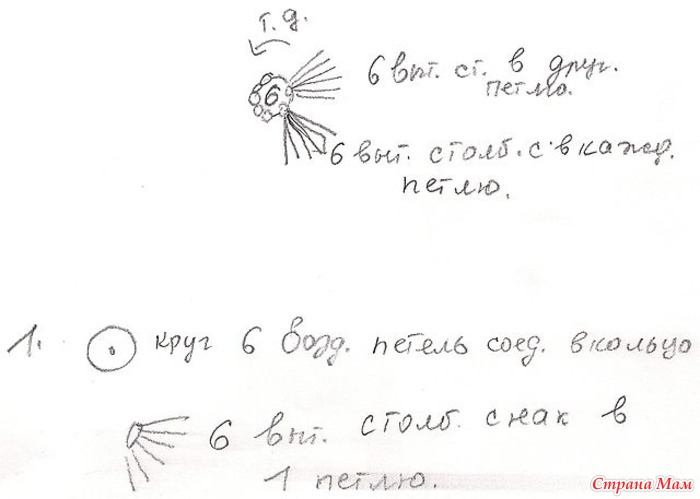 т. д.
6
6 выт. ст. в друг.
петлю.
6 выт. столб. с в кажд.
петлю.
1. круг 6 возд. петель соед. в кольцо
6 выт. столб. с нак в
1 петлю.
Страна Мам